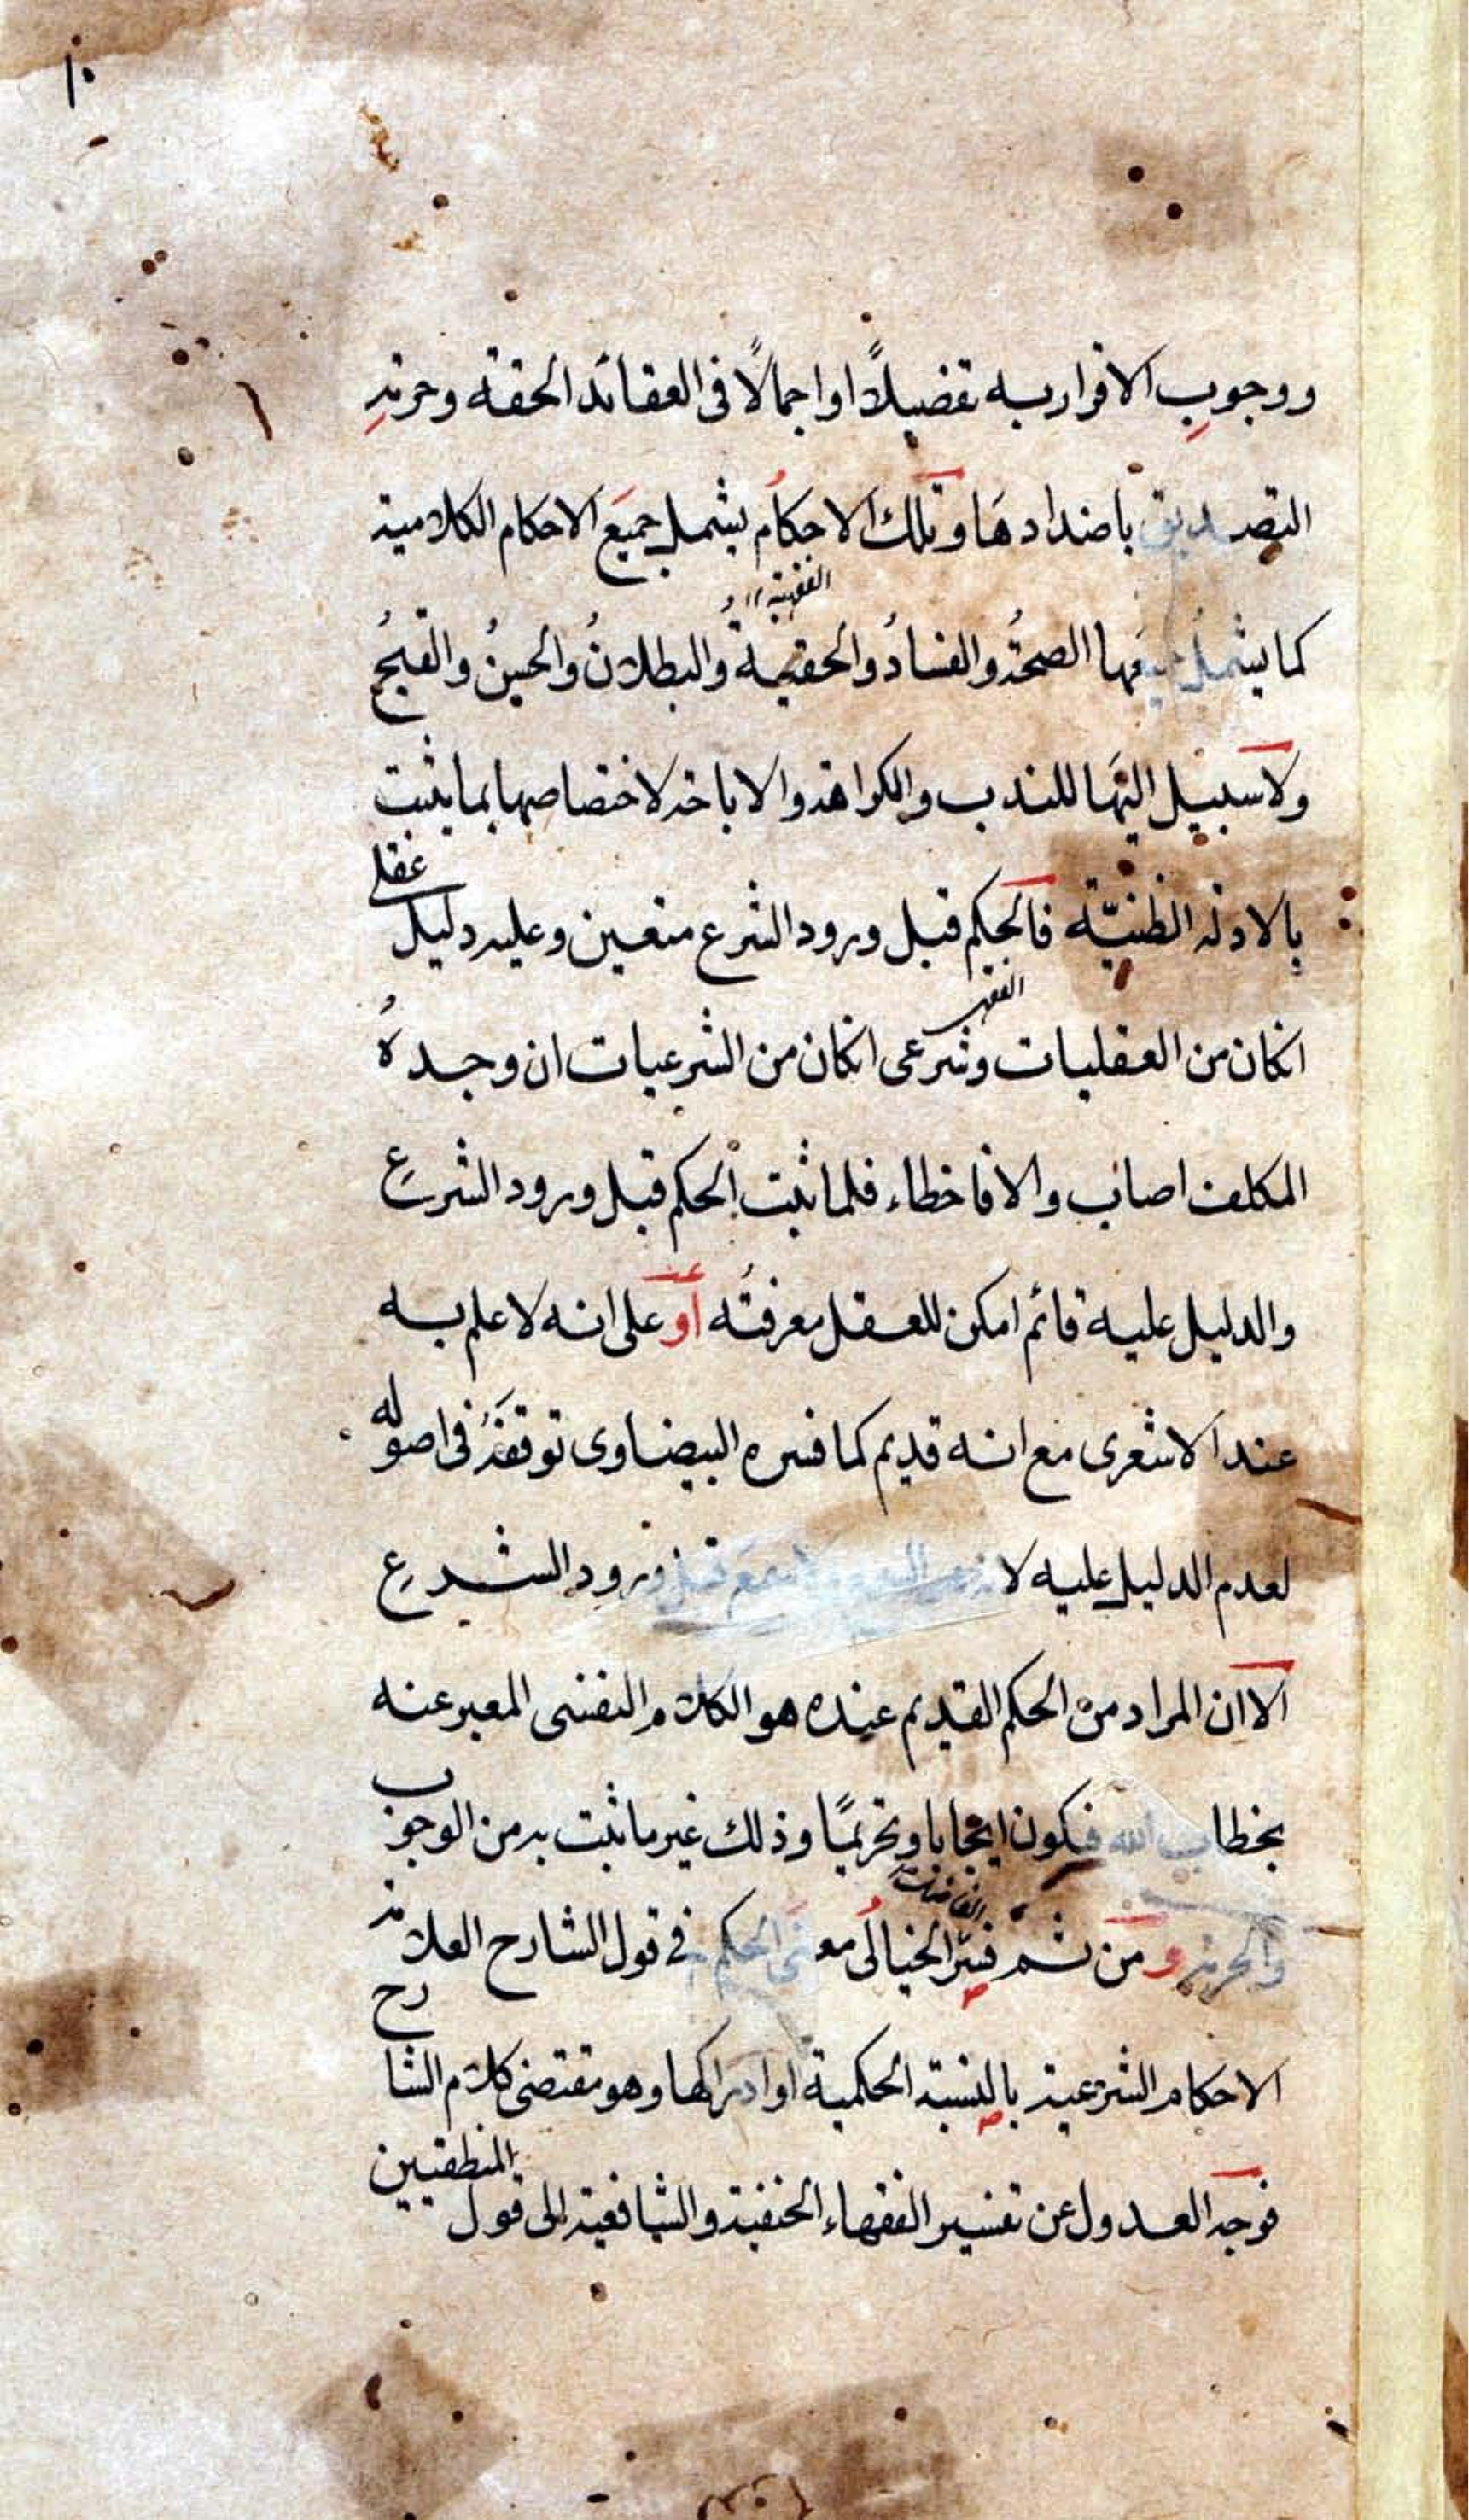 ١٠
ووجوب الاقرار به تفضيلًا او اجمالًا فى العقائد الحقة وحرمة
التصديق باضدادها وتلك الاحكام يشمل جميع الاحكام الكلامية
الفقهية
كما يشمل جميعها الصحةُ والفسادُ والحقيةُ والبطلانُ والحسنُ والقبحُ
ولا سبيل اليها للندب والكراهة والاباحة لاختصاصها بما يثبت
بالادلة الظنيّة فالحكم قبل ورود الشرع متعين وعليه دليل عقلى
الفقهية
انكان من العقليات وشرعى انكان من الشرعيات ان وجده
المكلف اصاب والا فاخطاء فلما ثبت الحكم قبل ورود الشرع
والدليل عليه قائم امكن للعقل معرفتُه أو على انه لا علم به
عند الاشعرى مع انه قديم كما فسره البيضاوى توقفَهُ فى اصوله
لعدم الدليل عليه لا قبل ورود الشرع
الا ان المراد من الحكم القديم عنده هو الكلام النفسى المعبر عنه
بخطاب الله فيكون ايجابا وتحريمًا وذلك غير ما ثبت به من الوجوب
والحرمة ومن ثم فسّر الخيالى معنى الحكم فى قول الشارح العلامة
الاحكام الشرعية بالنسبة الحكمية او ادراكها وهو مقتضى كلام الشارح
فوجه العدول عن تفسير الفقهاء الحنفية والشافعية الى قول المنطقيين